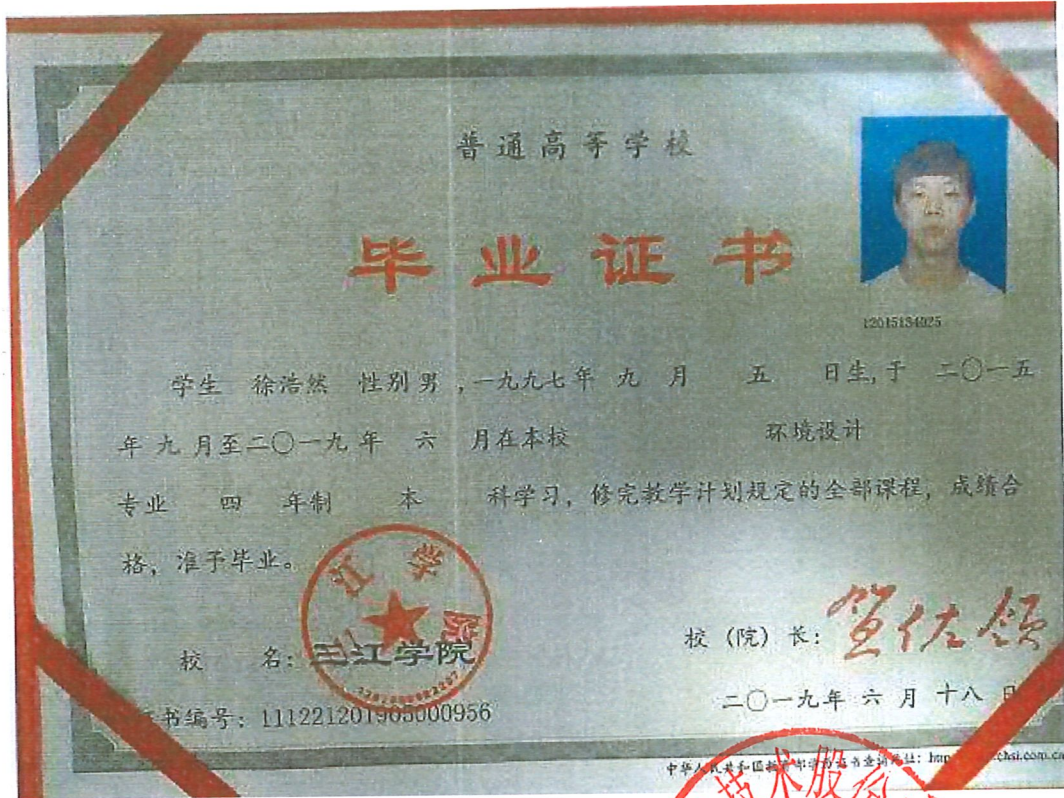 普通高等学校
毕业证书
12015134025
学生 徐浩然 性别 男 ，一九九七年 九 月 五 日生，于 二〇一五
年 九 月至二〇一九年 六 月在本校 环境设计
专业 四 年制 本 科学习，修完教学计划规定的全部课程，成绩合
格，准予毕业。
江学院
校 名：三江学院
校（院）长：
二〇一九年 六 月 十八 日
书编号：111221201905000956
中华人民共和国教育部学历证书查询网址：http chsi.com.cn
技术股份